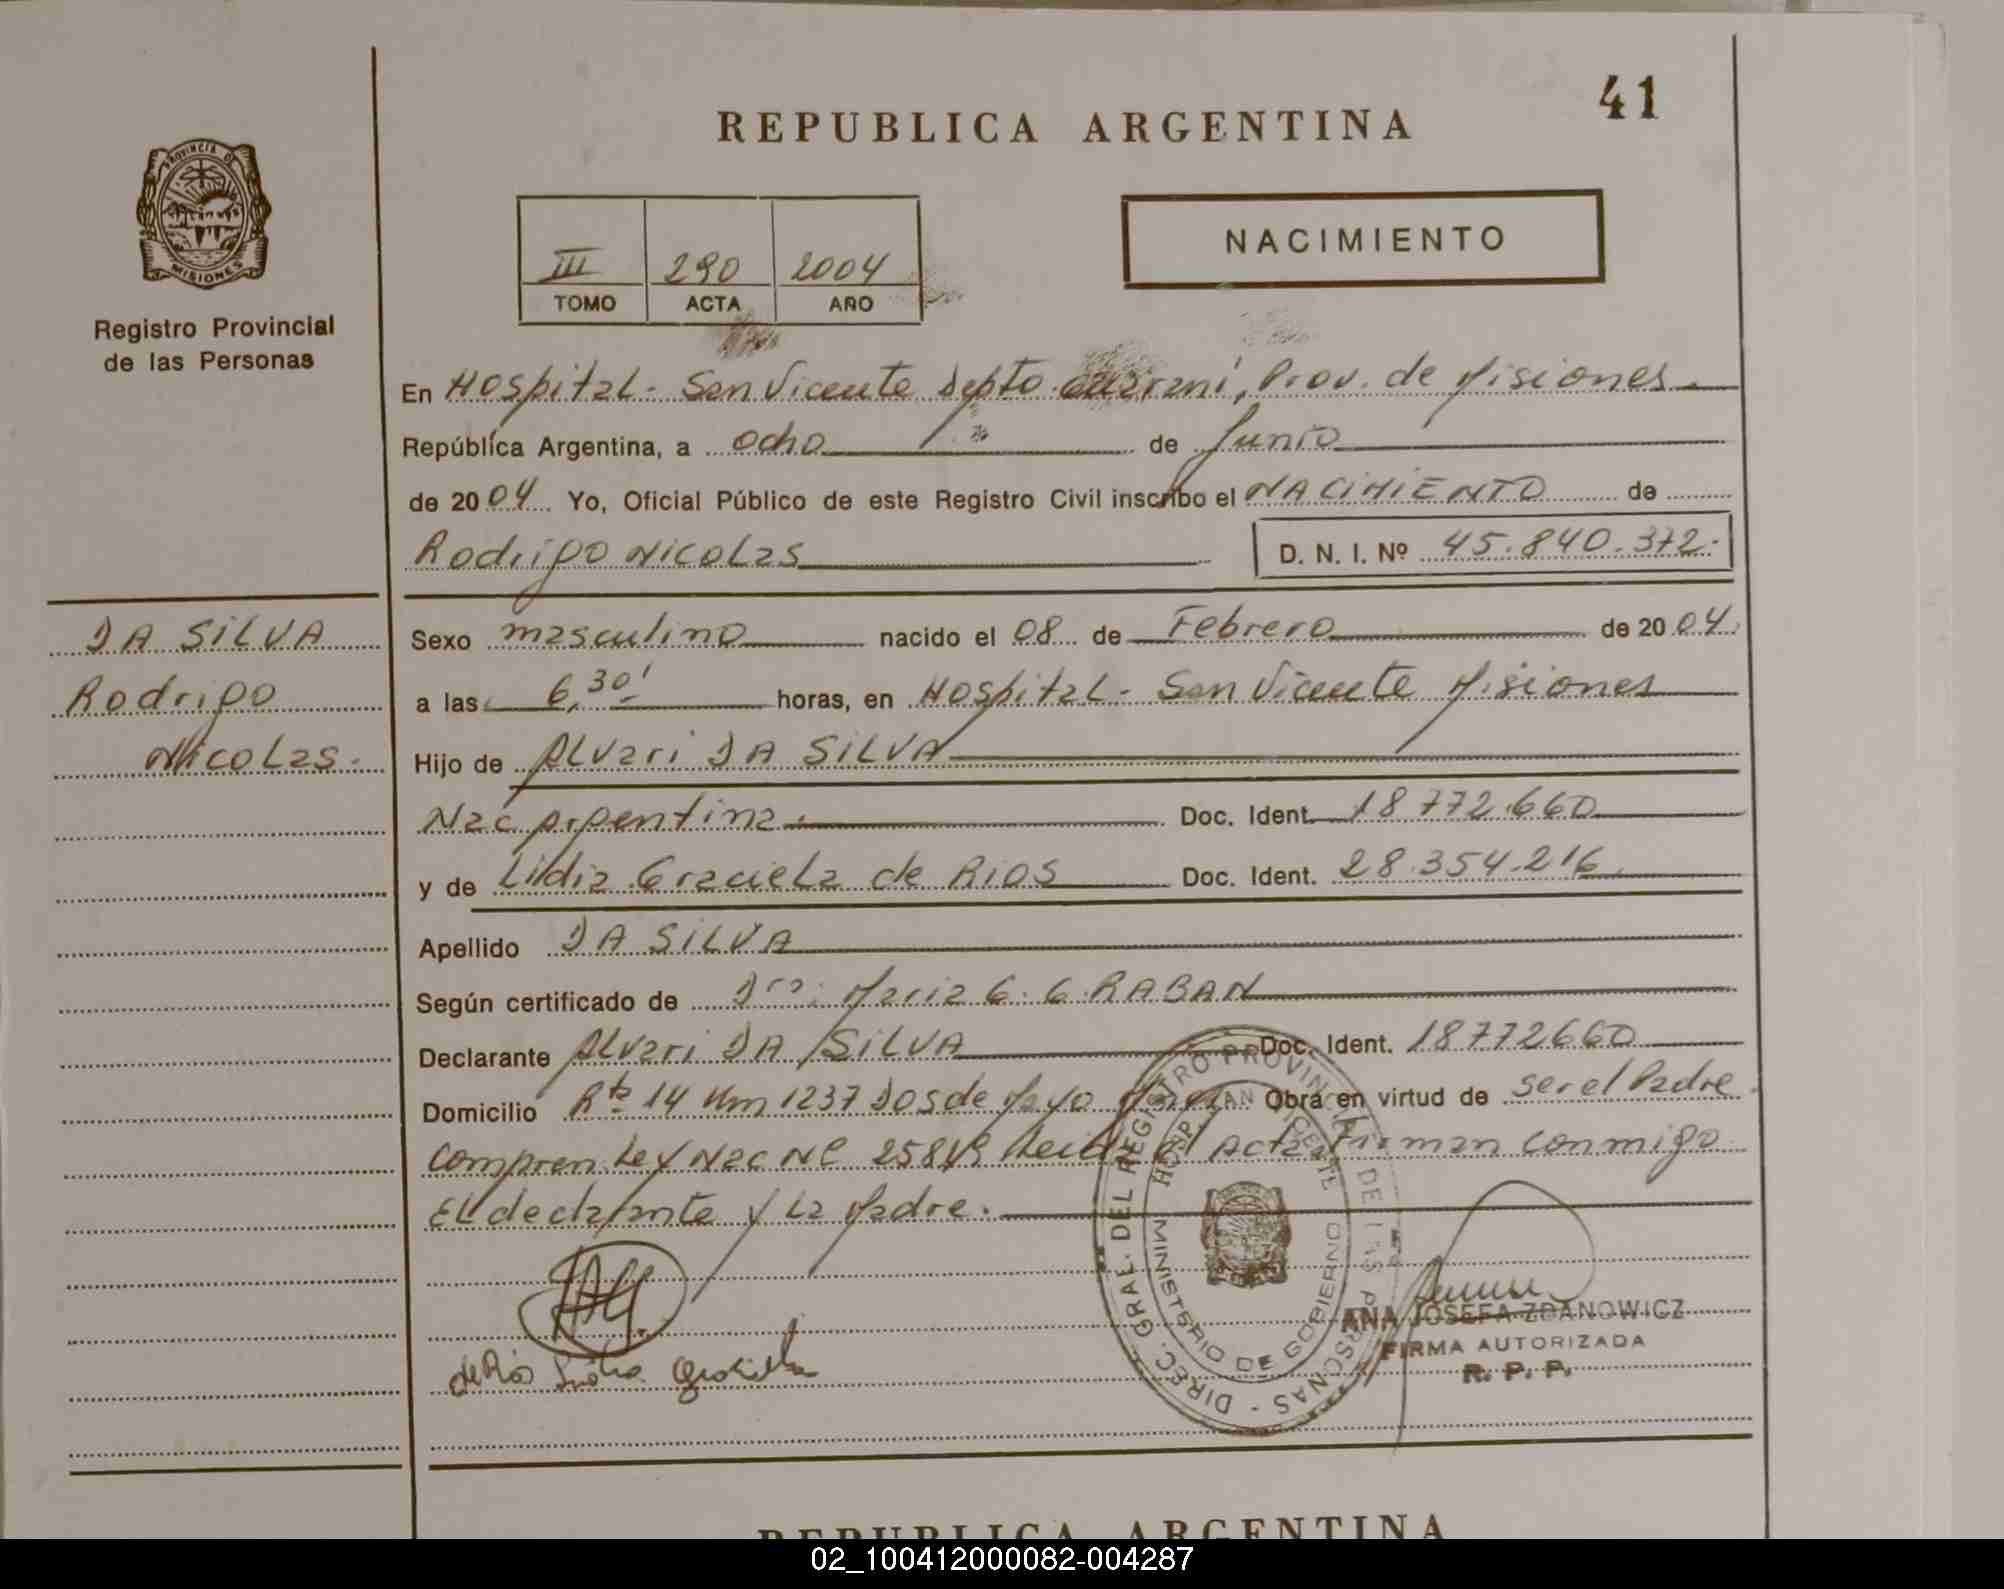 41
REPUBLICA ARGENTINA
PROVINCIA DE
MISIONES
Registro Provincial
de las Personas
III 290 2004
TOMO ACTA AÑO
NACIMIENTO
En Hospital - San Vicente Depto. Guaraní, Prov. de Misiones.
República Argentina, a ocho de Junio
de 2004 Yo, Oficial Público de este Registro Civil inscribo el NACIMIENTO de
Rodrigo Nicolas D. N. I. Nº 45.840.372.
DA SILVA
Rodrigo
Nicolas.
Sexo masculino nacido el 08 de Febrero de 2004
a las 6,30' horas, en Hospital - San Vicente Misiones
Hijo de Alvari DA SILVA
Nac Argentina. Doc. Ident. 18 772.660
y de Lidia Graciela de Rios Doc. Ident. 28.354.216
Apellido DA SILVA
Según certificado de Dra. Maria G. G. RABAN
Declarante Alvari DA SILVA Doc. Ident. 18772660
Domicilio Rta 14 Km 1237 Dos de Mayo Obra en virtud de ser el Padre.
Ley Nac Nº Leida el Acta Firman conmigo
El declarante y La Madre.
de Rios Lidia Graciela
DIREC. GRAL. DEL REGISTRO PROVINCIAL DE LAS PERSONAS -
HOSP. SAN VICENTE
MINISTERIO DE GOBIERNO
ANA JOSEFA ZDANOWICZ
FIRMA AUTORIZADA
R. P. P.
REPUBLICA ARGENTINA
02_100412000082-004287